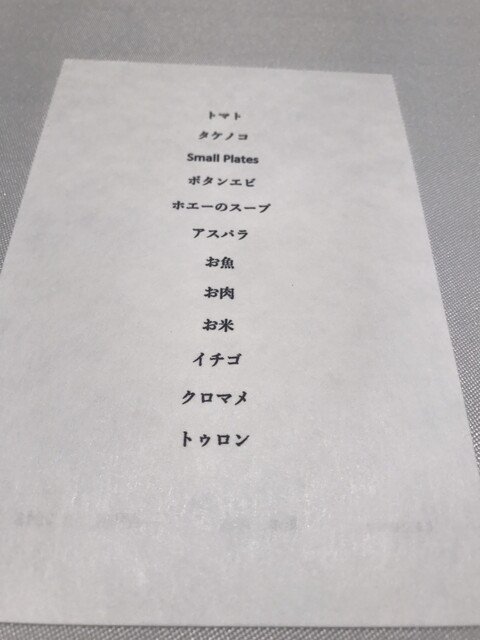 トマト
タケノコ
Small Plates
ボタンエビ
ホエーのスープ
アスパラ
お魚
お肉
お米
イチゴ
クロマメ
トゥロン